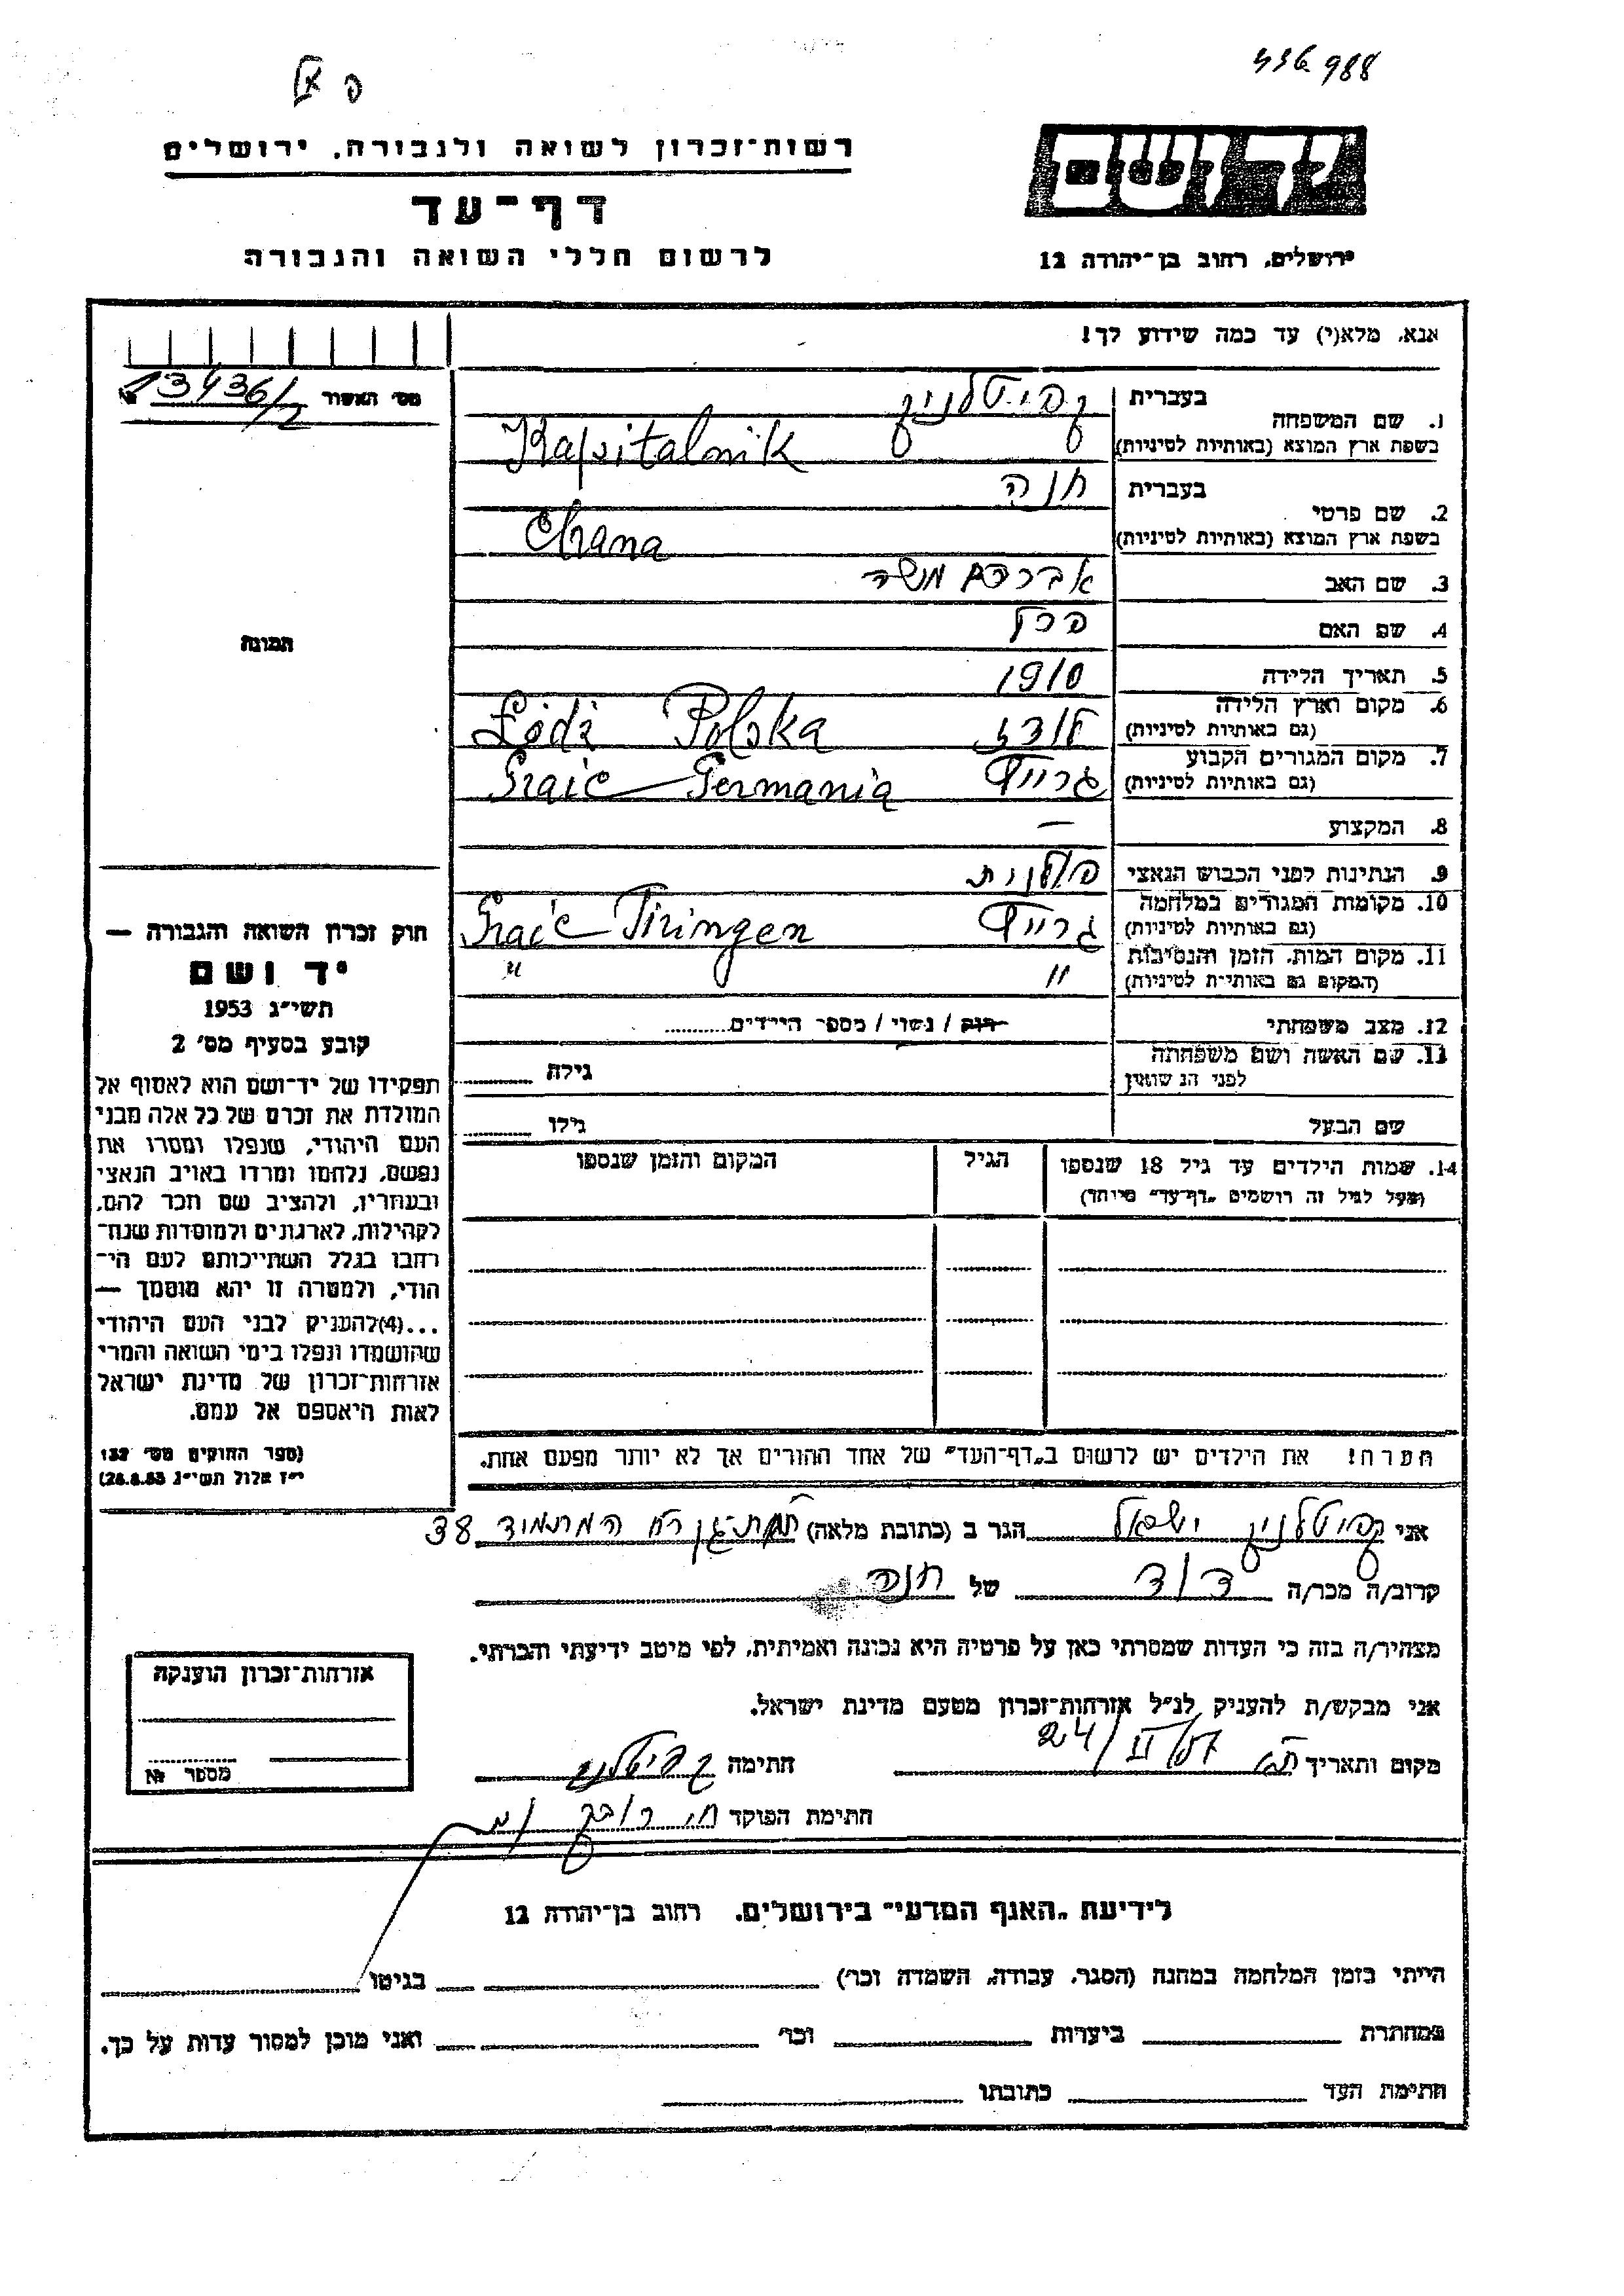 436988
פ אל
רשות־זכרון לשואה ולגבורה, ירושלים
דף־עד
לרשום חללי השואה והגבורה
ידושם
ירושלים, רחוב בן־יהודה 12
אנא, מלא(י) עד כמה שידוע לך!
מס׳ האשור 13436/2
תמונה
1. שם המשפחה
בעברית קפיטלניק
בשפת ארץ המוצא (באותיות לטיניות) Kapitalnik
2. שם פרטי
בעברית חנה
בשפת ארץ המוצא (באותיות לטיניות) Chana
3. שם האב אברהם משה
4. שם האם פרל
5. תאריך הלידה 1910
6. מקום וארץ הלידה לודז Łódź Polska
(גם באותיות לטיניות)
7. מקום המגורים הקבוע גרייץ Graic Germania
(גם באותיות לטיניות)
8. המקצוע —
9. הנתינות לפני הכבוש הנאצי פולנית
10. מקומות המגורים במלחמה גרייץ Graic Tiringen
(גם באותיות לטיניות)
11. מקום המות, הזמן והנסיבות " "
(המקום גם באותיות לטיניות)
12. מצב משפחתי רוק / נשוי / מספר הילדים............
13. שם האשה ושם משפחתה גילה
לפני הנישואין
שם הבעל גילו
14. שמות הילדים עד גיל 18 שנספו הגיל המקום והזמן שנספו
(מעל לגיל זה רושמים „דף־עד״ מיוחד)
חוק זכרון השואה והגבורה —
יד ושם
תשי״ג 1953
קובע בסעיף מס׳ 2
תפקידו של יד־ושם הוא לאסוף אל
המולדת את זכרם של כל אלה מבני
העם היהודי, שנפלו ומסרו את
נפשם, נלחמו ומרדו באויב הנאצי
ובעוזריו, ולהציב שם וזכר להם,
לקהילות, לארגונים ולמוסדות שנח־
רבו בגלל השתייכותם לעם הי־
הודי, ולמטרה זו יהא מוסמך —
...(4)להעניק לבני העם היהודי
שהושמדו ונפלו בימי השואה והמרי
אזרחות־זכרון של מדינת ישראל
לאות היאספם אל עמם.
(ספר החוקים מס׳ 132
י״ז אלול תשי״ג 28.8.53)
הערה! את הילדים יש לרשום ב„דף־העד״ של אחד ההורים אך לא יותר מפעם אחת.
אני קפיטלניק ישראל הגר ב (כתובת מלאה) רמת־גן רח המתמיד 38
קרוב/ה מכר/ה דוד של חנה
מצהיר/ה בזה כי העדות שמסרתי כאן על פרטיה היא נכונה ואמיתית, לפי מיטב ידיעתי והכרתי.
אני מבקש/ת להעניק לנ״ל אזרחות־זכרון מטעם מדינת ישראל.
מקום ותאריך 24/II 57 חתימה קפיטלניק
חתימת הפוקד
אזרחות־זכרון הוענקה
מספר №
לידיעת „האגף המדעי״ בירושלים, רחוב בן־יהודה 12
הייתי בזמן המלחמה במחנה (הסגר, עבודה, השמדה וכו׳) בגיטו
במחתרת ביערות וכו׳ ואני מוכן למסור עדות על כך.
חתימת העד כתובתו